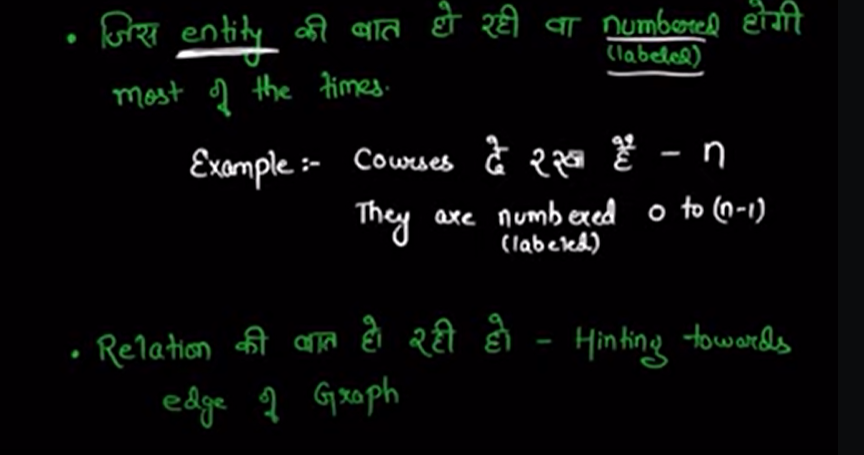 • जिस entity की बात हो रही वा numbered होगी
(labeled)
most of the times.
Example :- Courses दे रखे हैं - n
They are numbered 0 to (n-1)
(labeled)
• Relation की बात हो रही हो - Hinting towards
edge of Graph